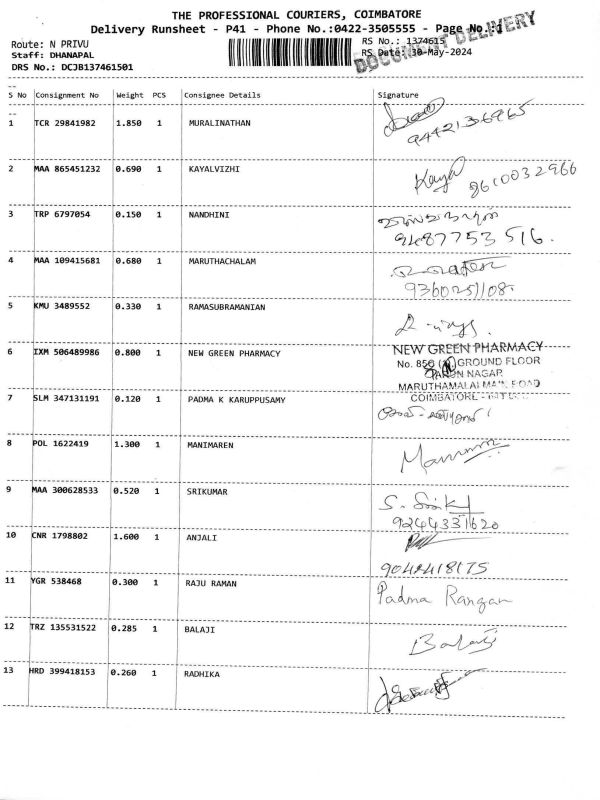 THE PROFESSIONAL COURIERS, COIMBATORE
Delivery Runsheet - P41 - Phone No.:0422-3505555 - Page No.:1
DOCUMENT DELIVERY
Route: N PRIVU
RS No.: 1374615
Staff: DHANAPAL
RS Date: 30-May-2024
DRS No.: DCJB137461501
S No Consignment No Weight PCS Consignee Details Signature
1 TCR 29841982 1.850 1 MURALINATHAN
9442136965
2 MAA 865451232 0.690 1 KAYALVIZHI Kaya
8610032966
3 TRP 6797054 0.150 1 NANDHINI
9487753516.
4 MAA 109415681 0.680 1 MARUTHACHALAM
9360251108
5 KMU 3489552 0.330 1 RAMASUBRAMANIAN
6 IXM 506489986 0.800 1 NEW GREEN PHARMACY NEW GREEN PHARMACY
No. 850 GROUND FLOOR
NAGAR
MARUTHAMALAI MAIN ROAD
COIMBATORE
7 SLM 347131191 0.120 1 PADMA K KARUPPUSAMY
8 POL 1622419 1.300 1 MANIMAREN
9 MAA 300628533 0.520 1 SRIKUMAR S.
9244331620
10 CNR 1798802 1.600 1 ANJALI
9042418175
11 YGR 538468 0.300 1 RAJU RAMAN Padma Rangan
12 TRZ 135531522 0.285 1 BALAJI Balaji
13 HRD 399418153 0.260 1 RADHIKA